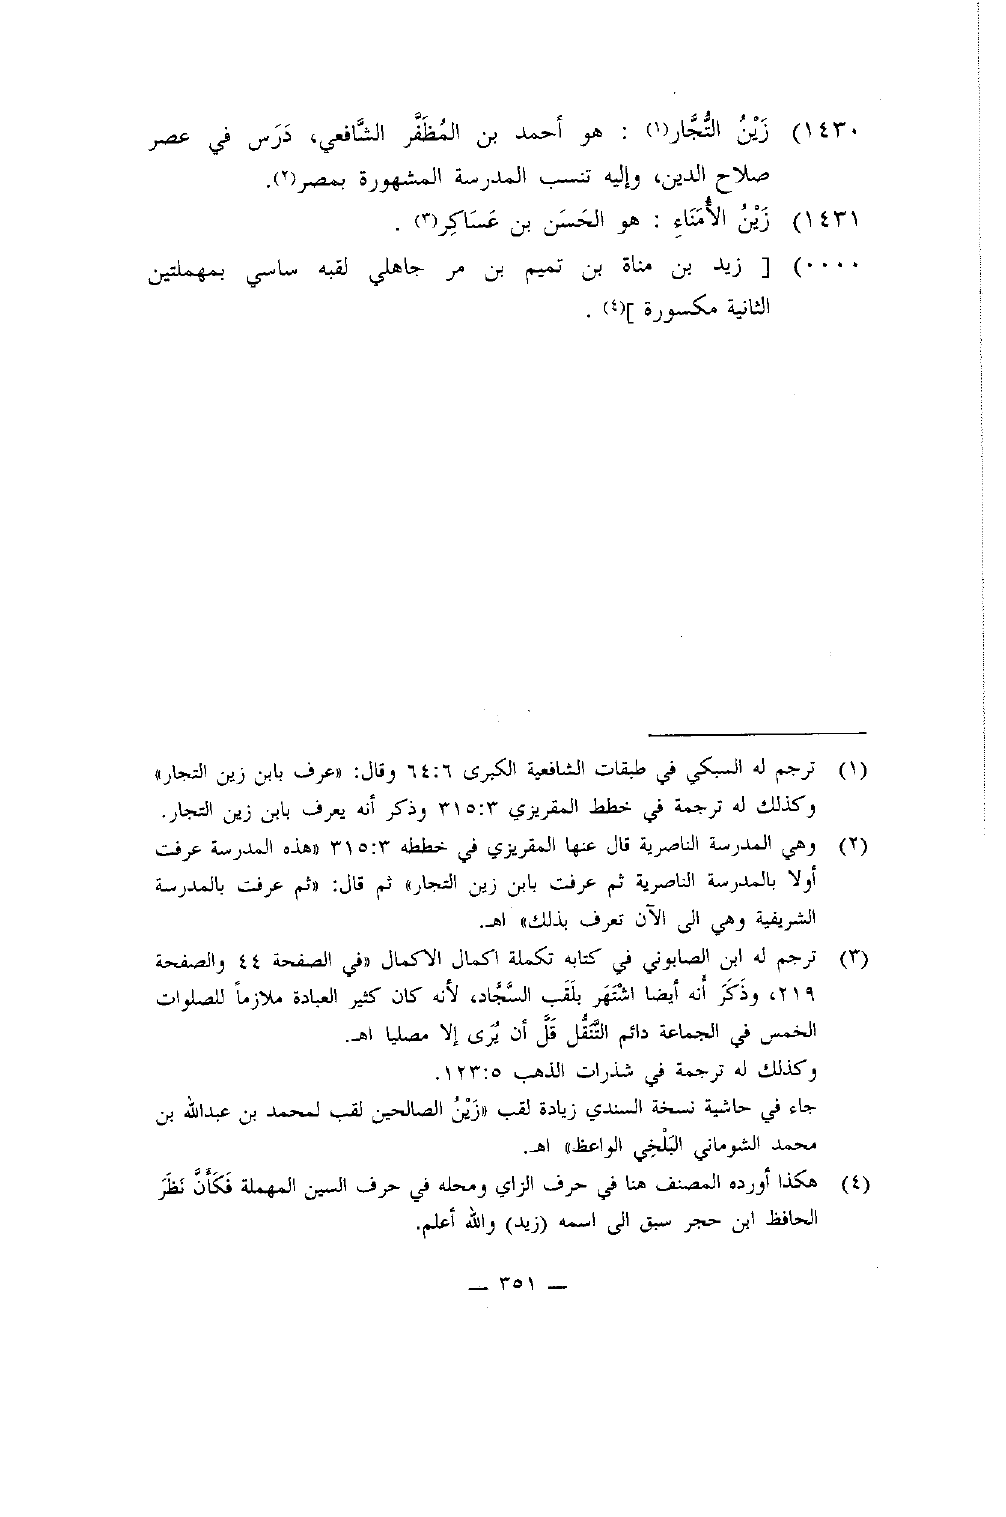 ١٤٣٠) زَيْنُ التُّجَّار(١) : هو أحمد بن المُظَفَّر الشَّافعي، دَرَس في عصر
صلاح الدين، وإليه تنسب المدرسة المشهورة بمصر(٢).
١٤٣١) زَيْنُ الأُمَنَاءِ : هو الحَسَن بن عَسَاكِر(٣) .
٠٠٠٠) [ زيد بن مناة بن تميم بن مر جاهلي لقبه ساسي بمهملتين
الثانية مكسورة ](٤) .
(١) ترجم له السبكي في طبقات الشافعية الكبرى ٦٤:٦ وقال: «عرف بابن زين التجار»
وكذلك له ترجمة في خطط المقريزي ٣١٥:٣ وذكر أنه يعرف بابن زين التجار.
(٢) وهي المدرسة الناصرية قال عنها المقريزي في خططه ٣١٥:٣ «هذه المدرسة عرفت
أولا بالمدرسة الناصرية ثم عرفت بابن زين التجار» ثم قال: «ثم عرفت بالمدرسة
الشريفية وهي الى الآن تعرف بذلك» اهـ.
(٣) ترجم له ابن الصابوني في كتابه تكملة اكمال الاكمال «في الصفحة ٤٤ والصفحة
٢١٩، وذَكَرَ أُنه أيضا اشْتَهَر بلَقَب السَّجَّاد، لأنه كان كثير العبادة ملازماً للصلوات
الخمس في الجماعة دائم التَّنَفُّل قَلَّ أن يُرَى إلا مصليا اهـ.
وكذلك له ترجمة في شذرات الذهب ١٢٣:٥.
جاء في حاشية نسخة السندي زيادة لقب «زَيْنُ الصالحين لقب لمحمد بن عبدالله بن
محمد الشوماني البَلْخِي الواعظ» اهـ.
(٤) هكذا أورده المصنف هنا في حرف الزاي ومحله في حرف السين المهملة فَكَأَنَّ نَظَرَ
الحافظ ابن حجر سبق الى اسمه (زيد) والله أعلم.
— ٣٥١ —